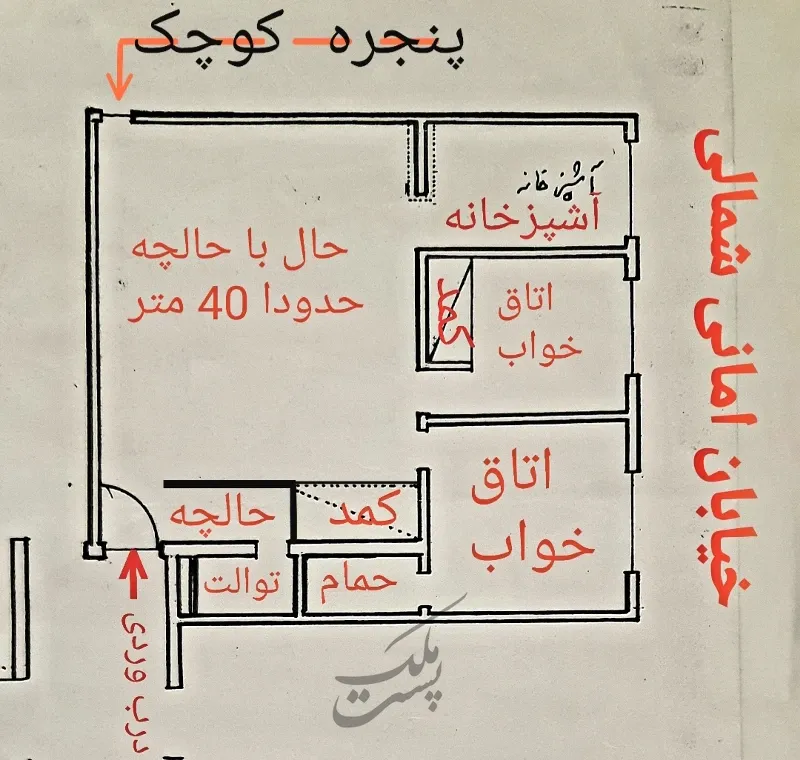 پنجره کوچک
آشپزخانه
آشپزخانه
حال با حالچه
حدودا 40 متر
اتاق
خواب
کمد
خیابان امانی شمالی
اتاق
خواب
کمد
حالچه
حمام
توالت
درب وردی
ملک
پست